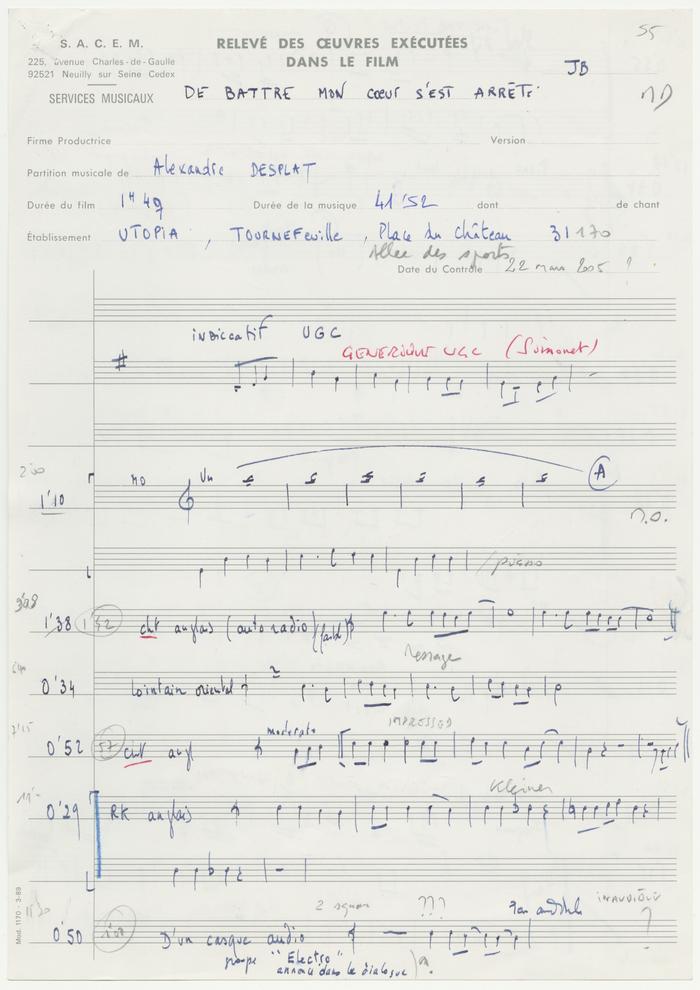 55
S. A. C. E. M.
RELEVÉ DES ŒUVRES EXÉCUTÉES
DANS LE FILM
225, Avenue Charles-de-Gaulle
92521 Neuilly sur Seine Cedex
JB
SERVICES MUSICAUX
DE BATTRE MON CŒUR S'EST ARRÊTÉ
Firme Productrice
Version
Partition musicale de Alexandre DESPLAT
Durée du film 1H 49 Durée de la musique 41'52 dont de chant
Établissement UTOPIA, TOURNEFEUILLE, Place du Château 31170
Allée des sports
Date du Contrôle 22 mars 2005 ?
indiccatif UGC
GENERIQUE UGC
MO Un A
1'10
piano
1'38 1'52 cht anglais (auto radio)
Message
0'34 lointain oriental
moderato IMPRESSED
0'52 57 cht angl
Kleiner
0'29 RK anglais
???
0'50 D'un casque audio ?
groupe "Electro"
annoncé dans le dialogue
Mod. 1170 - 3-89